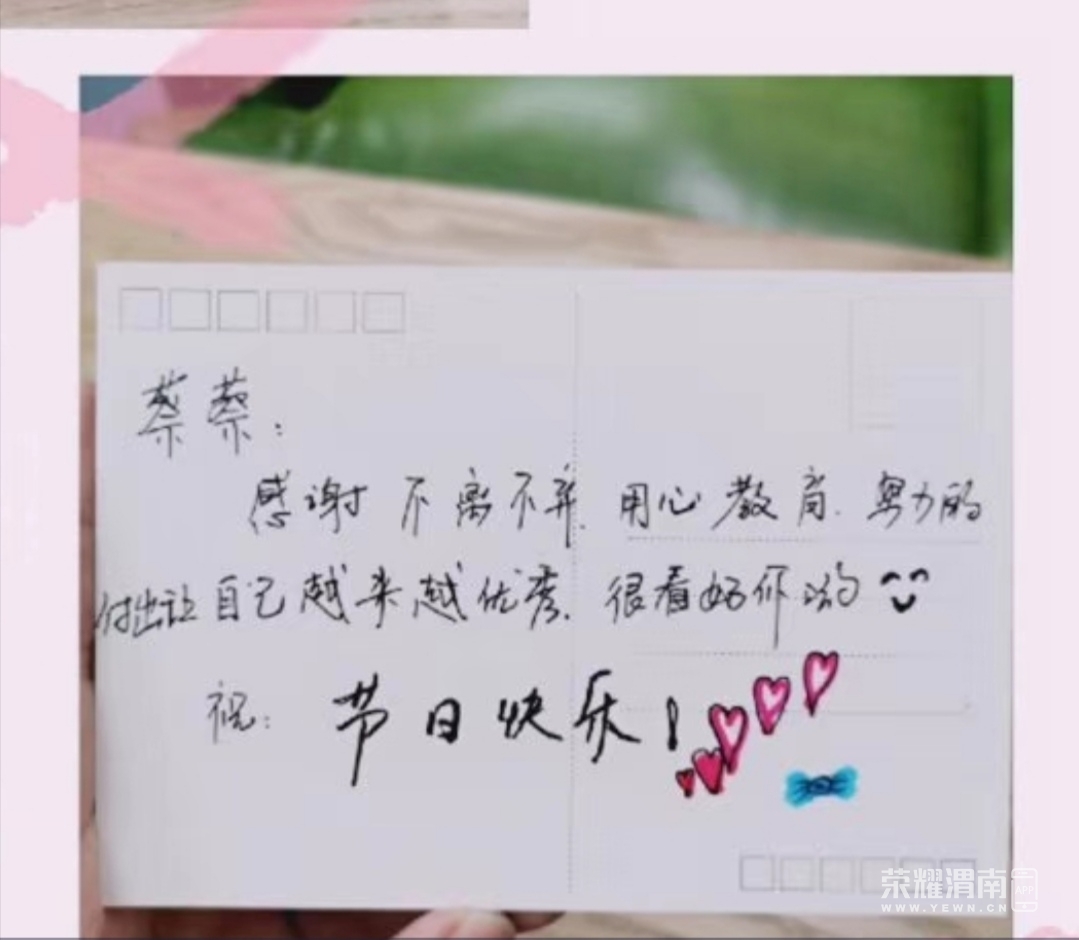 蔡蔡：
感谢 不离不弃、用心教育、努力的
付出让自己越来越优秀、很看好你哟
祝：节日快乐！
荣耀渭南 APP
WWW.YEWN.CN